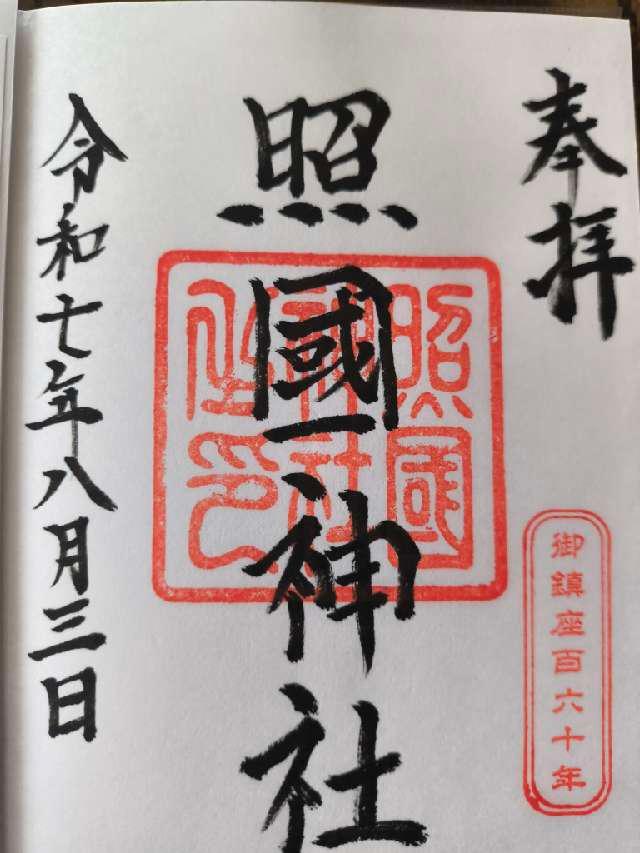 奉拝
照國神社
照國神社之印
御鎮座百六十年
令和七年八月三日